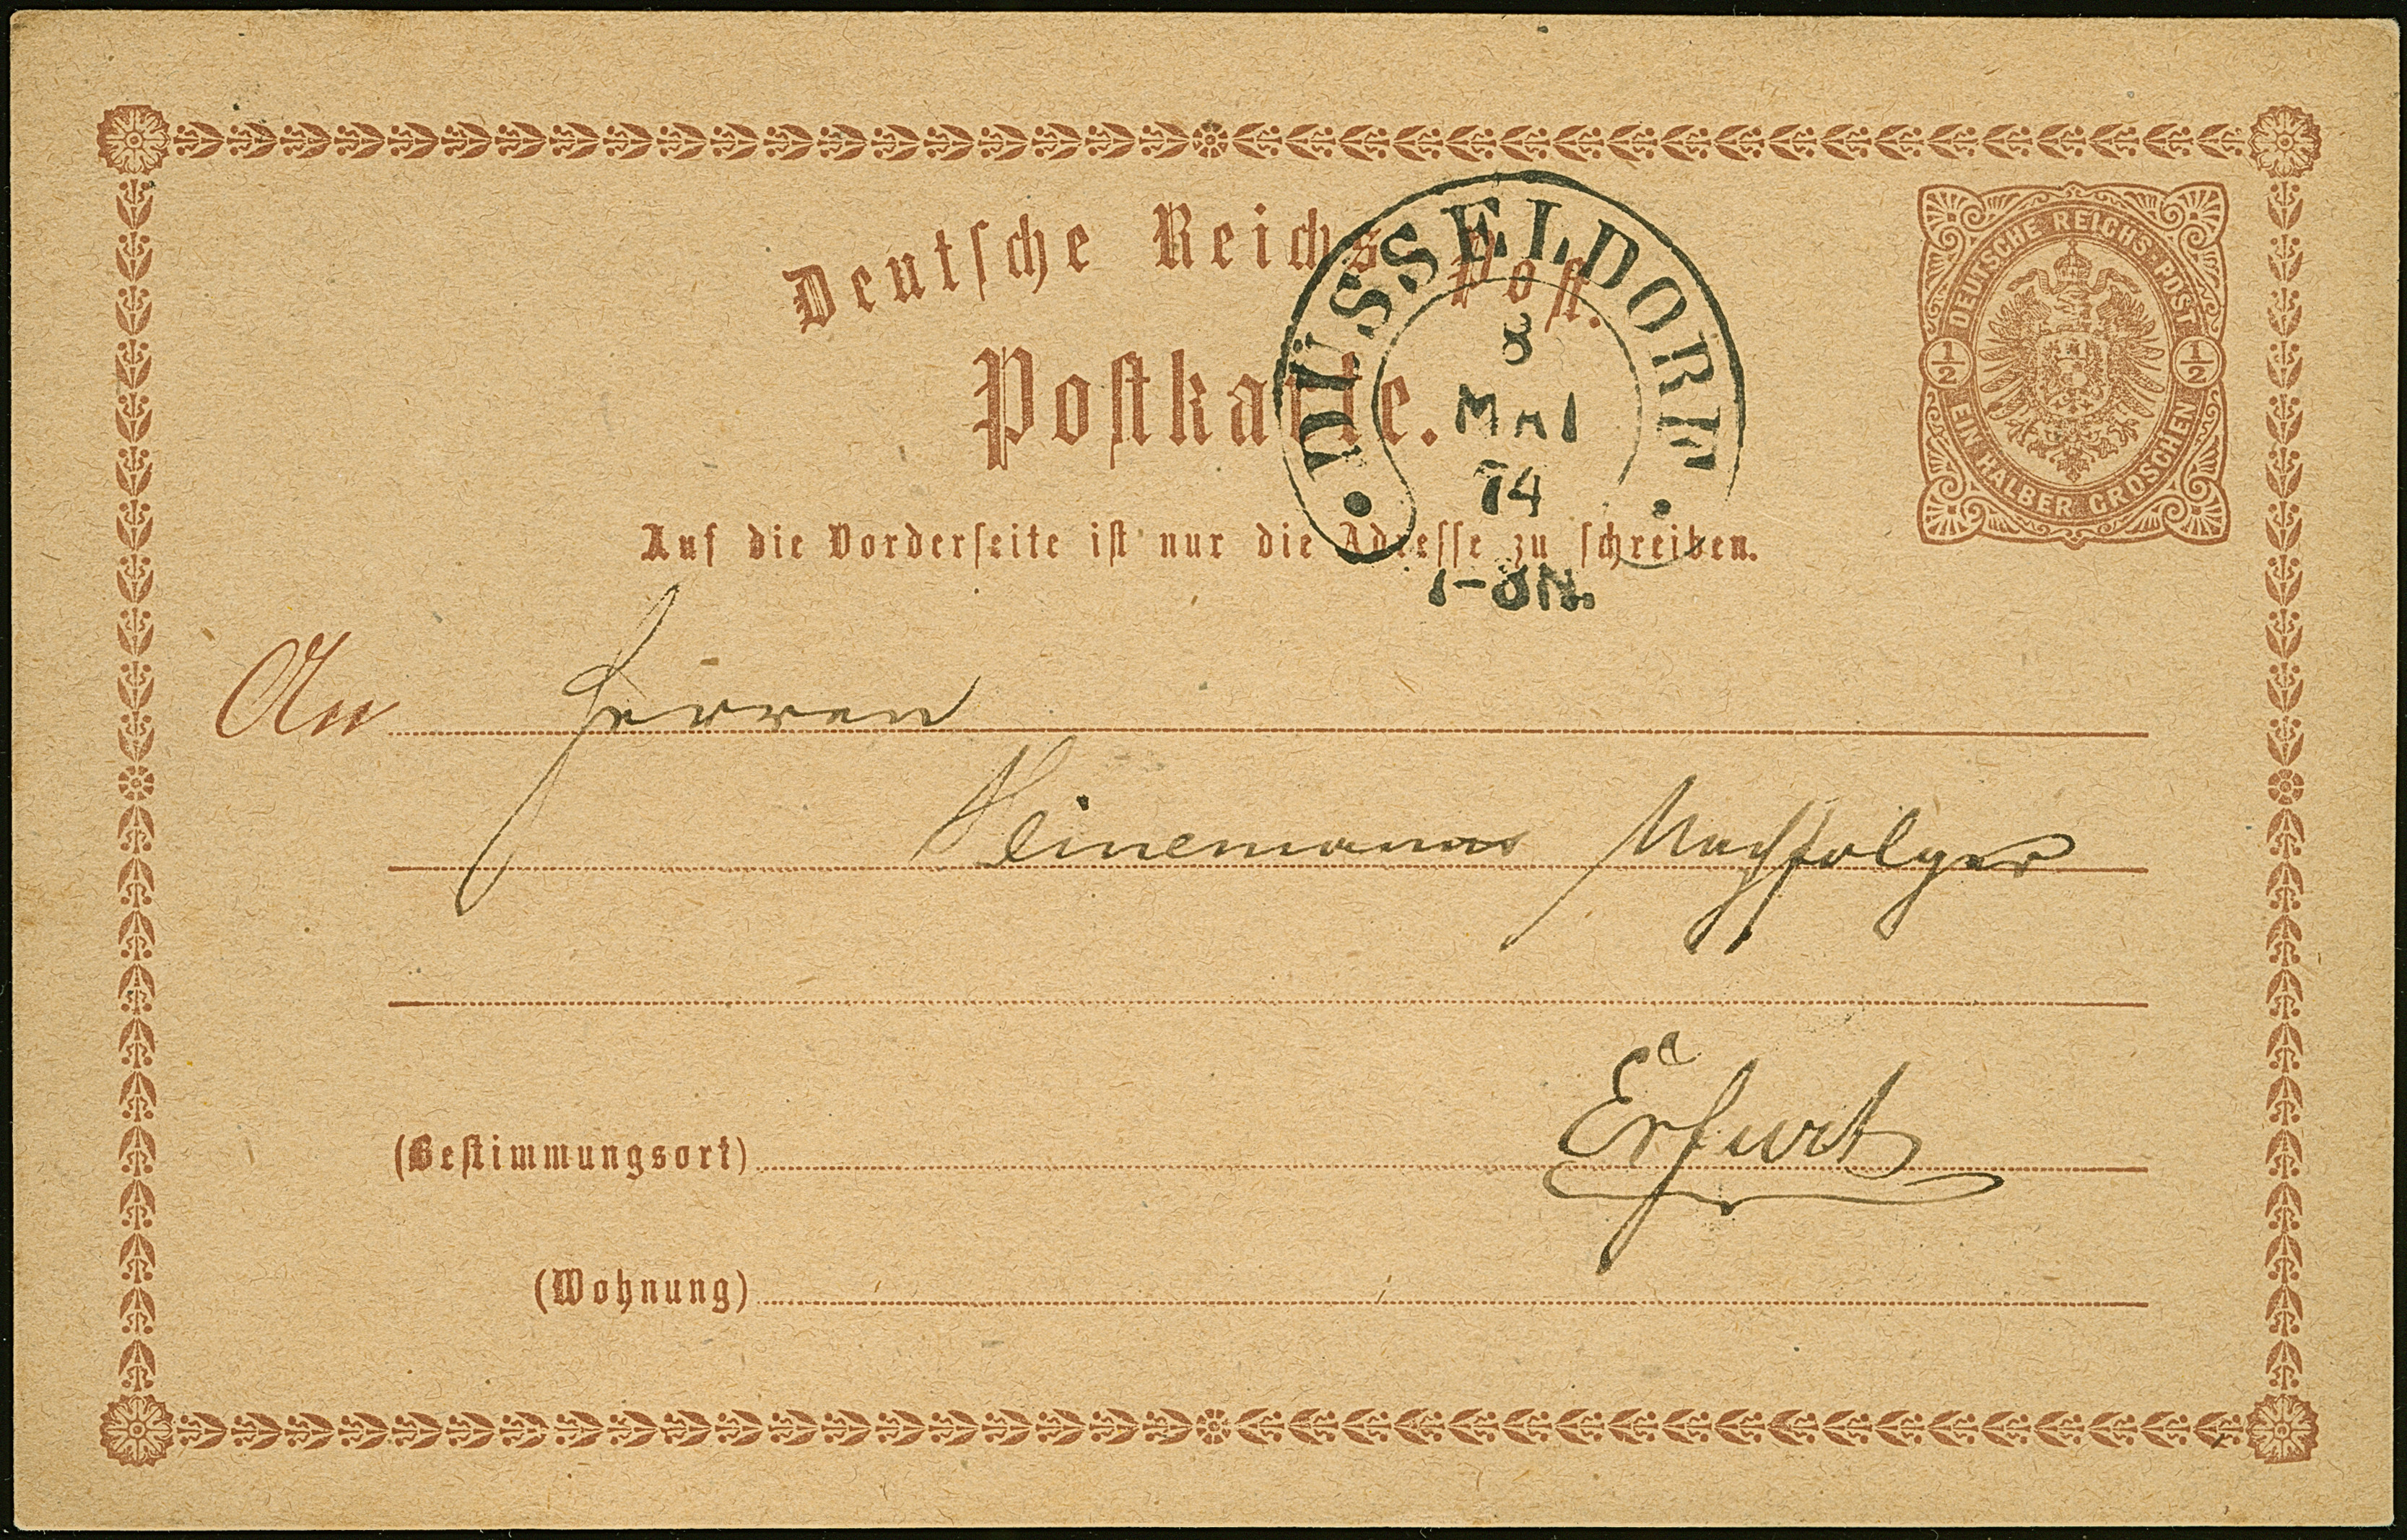 Deutsche Reichs-Post.
Postkarte.
DÜSSELDORF
8
MAI
74
DEUTSCHE REICHS-POST
1/2 1/2
EIN HALBER GROSCHEN
Auf die Vorderseite ist nur die Adresse zu schreiben.
N.
An Herren
Heinemanns Nachfolger
(Bestimmungsort) Erfurt
(Wohnung)